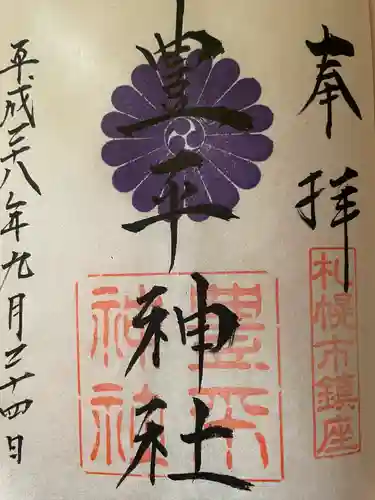 奉拝
札幌市鎮座
豊平神社
豊平神社
平成二八年九月二十四日